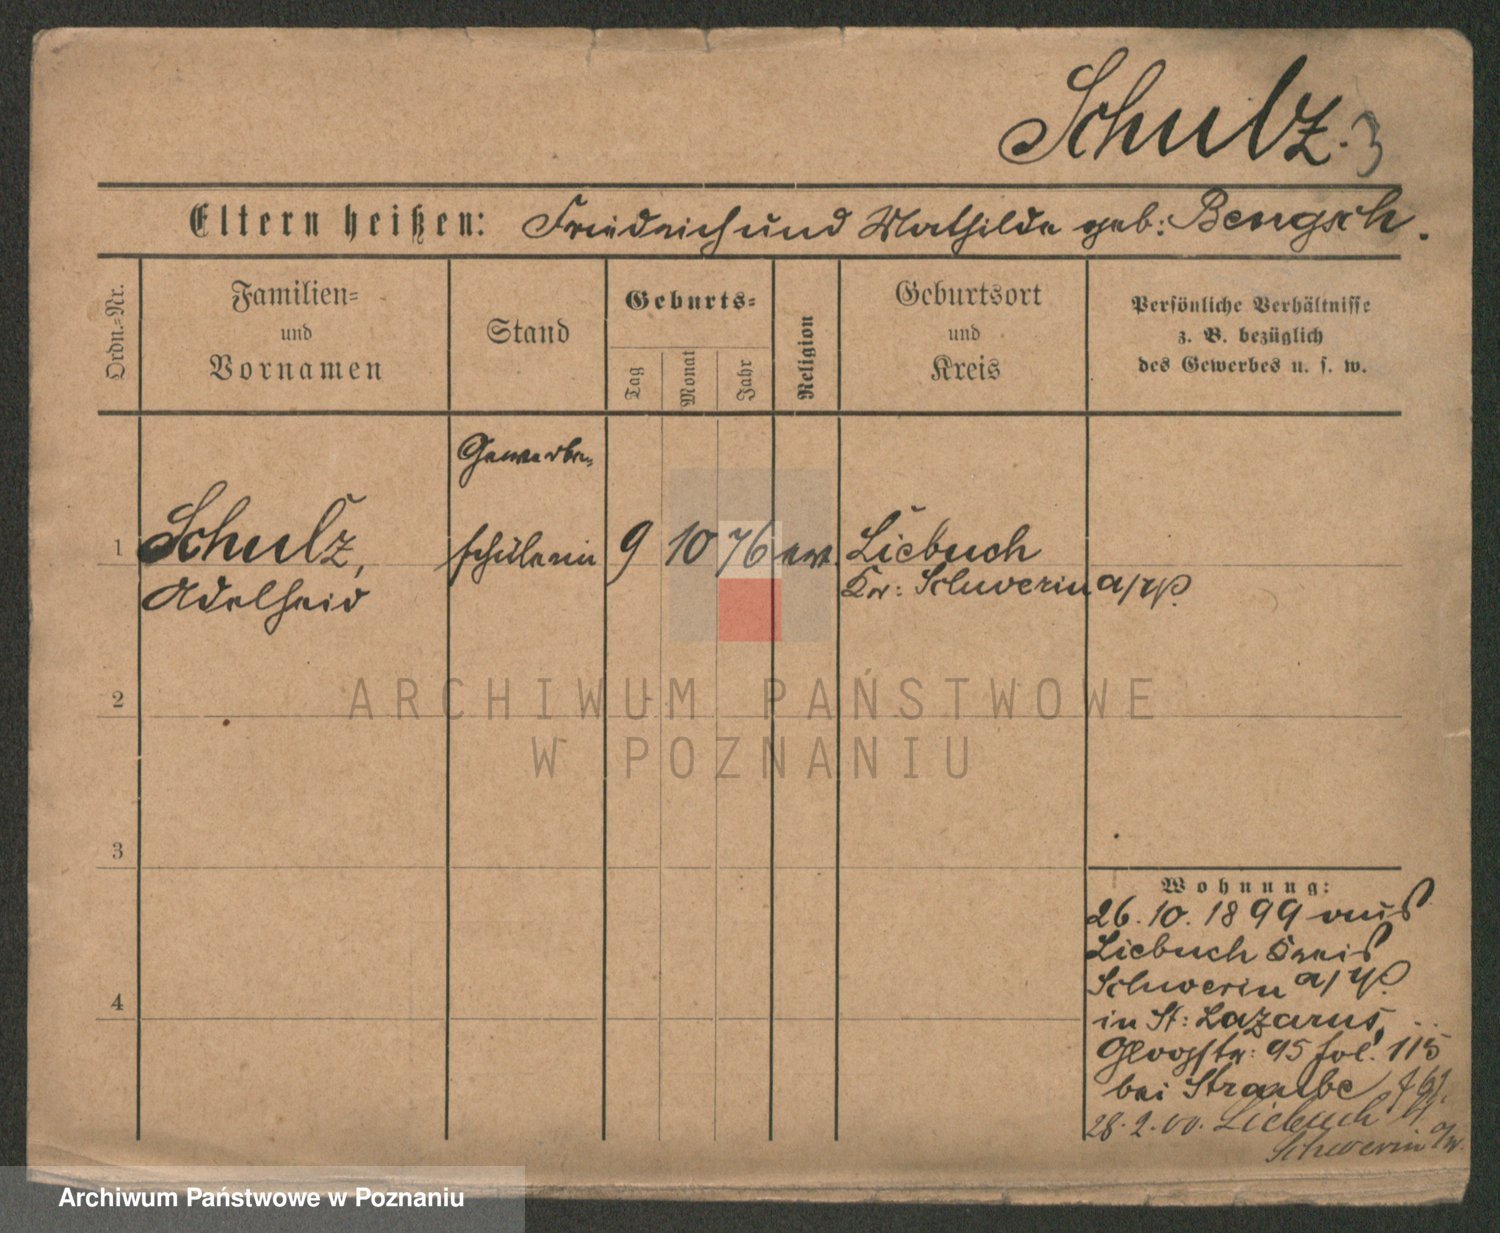 Schulz. 3
Eltern heißen: Friedrich und Mathilde geb: Bengsch.
Ordn.-Nr.
Familien-
und
Vornamen
Stand
Geburts-
Tag
Monat
Jahr
Religion
Geburtsort
und
Kreis
Persönliche Verhältnisse
z. B. bezüglich
des Gewerbes u. s. w.
Gewerbe-
1 Schulz, schülerin 9 10 76 ev. Liebuch
Adelheid Kr: Schwerin a/W.
2
ARCHIWUM PAŃSTWOWE
W POZNANIU
3
Wohnung:
26. 10. 1899 aus
Liebuch Kreis
Schwerin a/W.
4
in St: Lazarus,
Glogstr: 95 fol. 115
bei Straube
28. 2. 00. Liebuch
Schwerin a/W.
Archiwum Państwowe w Poznaniu